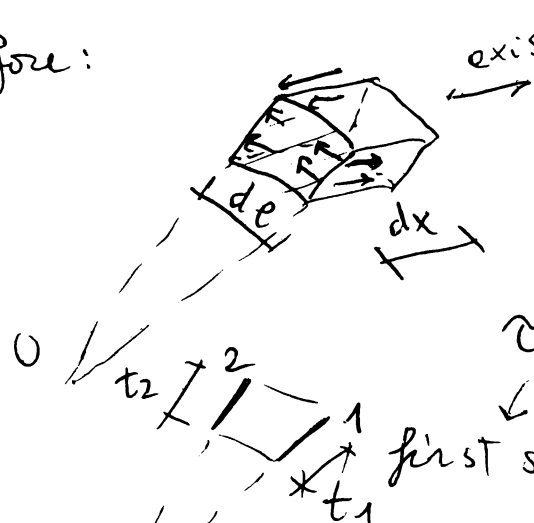 fore:
exis
de
dx
O
τ
t2 2
1
first s
t1